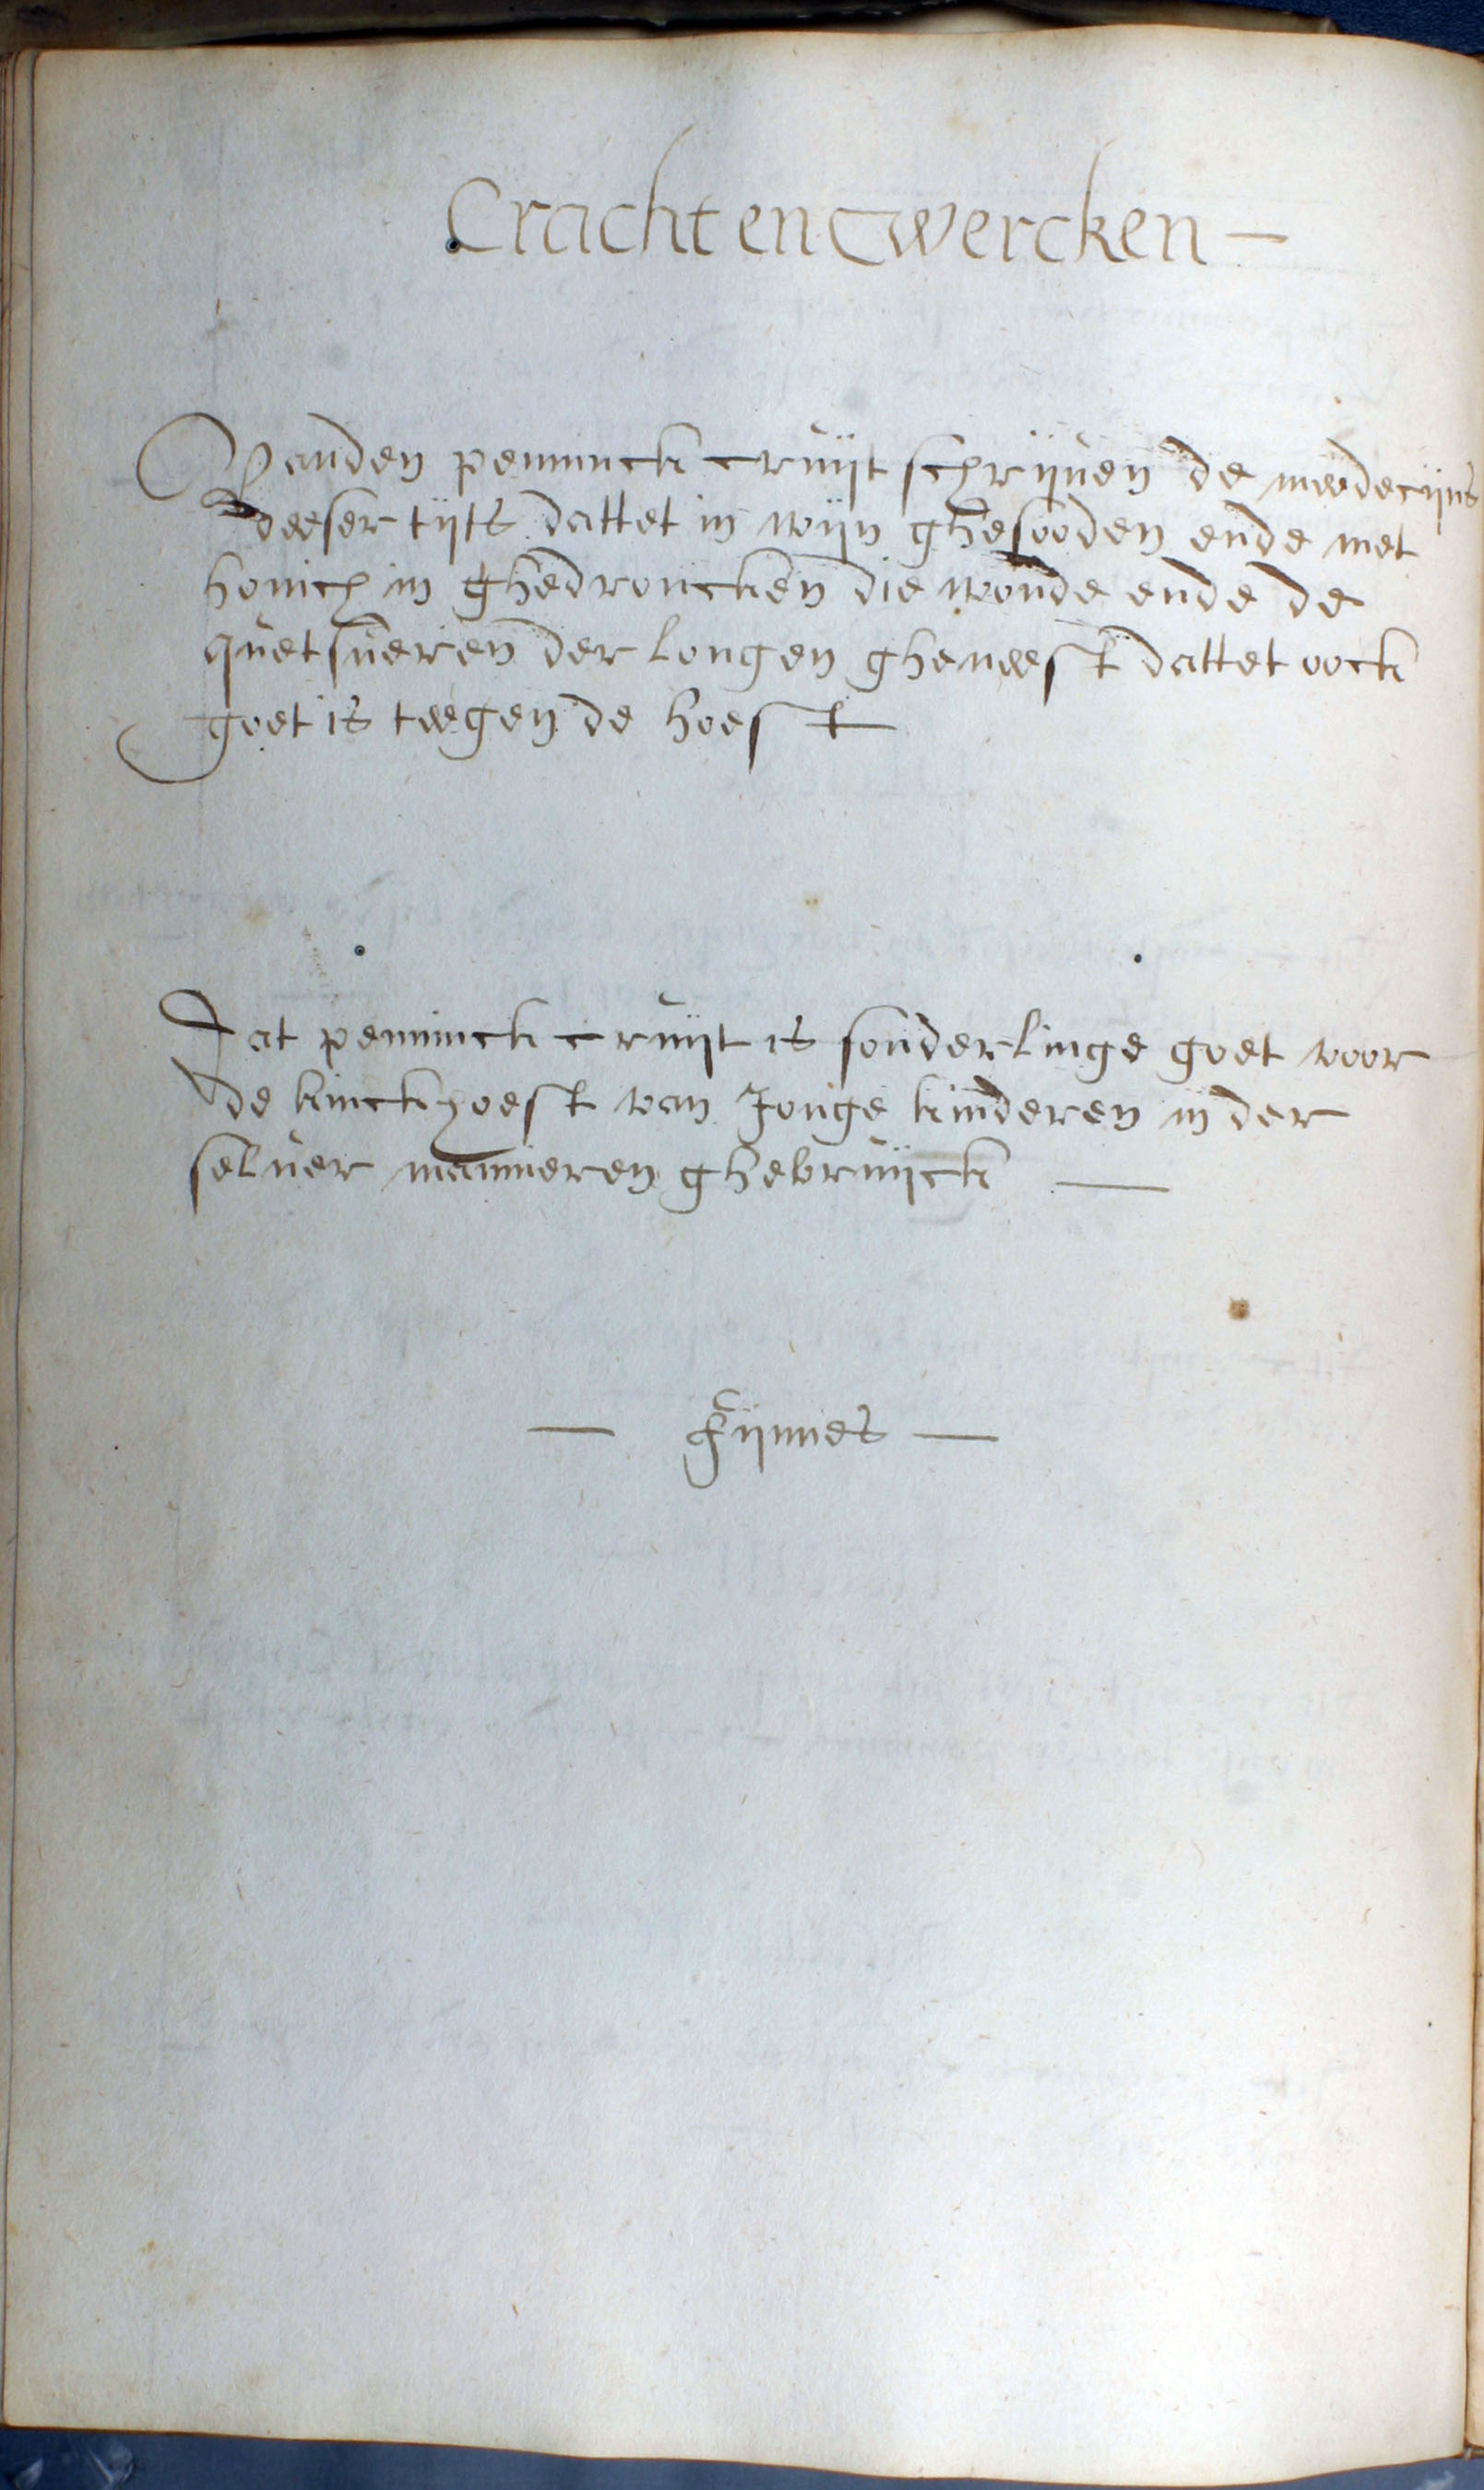 Cracht en wercken
Vanden penninck cruijt schrijuen de meedecijns
deeser tijts dattet in wijn ghesooden ende met
honich in ghedroncken die wonde ende de
quetsueren der longen gheneest dattet oock
goet is teegen de hoest
Dat penninck cruijt is sonderlinge goet voor
de kinckhoest van Jonge kinderen in der
seluer mannieren ghebruijck
fijnnes